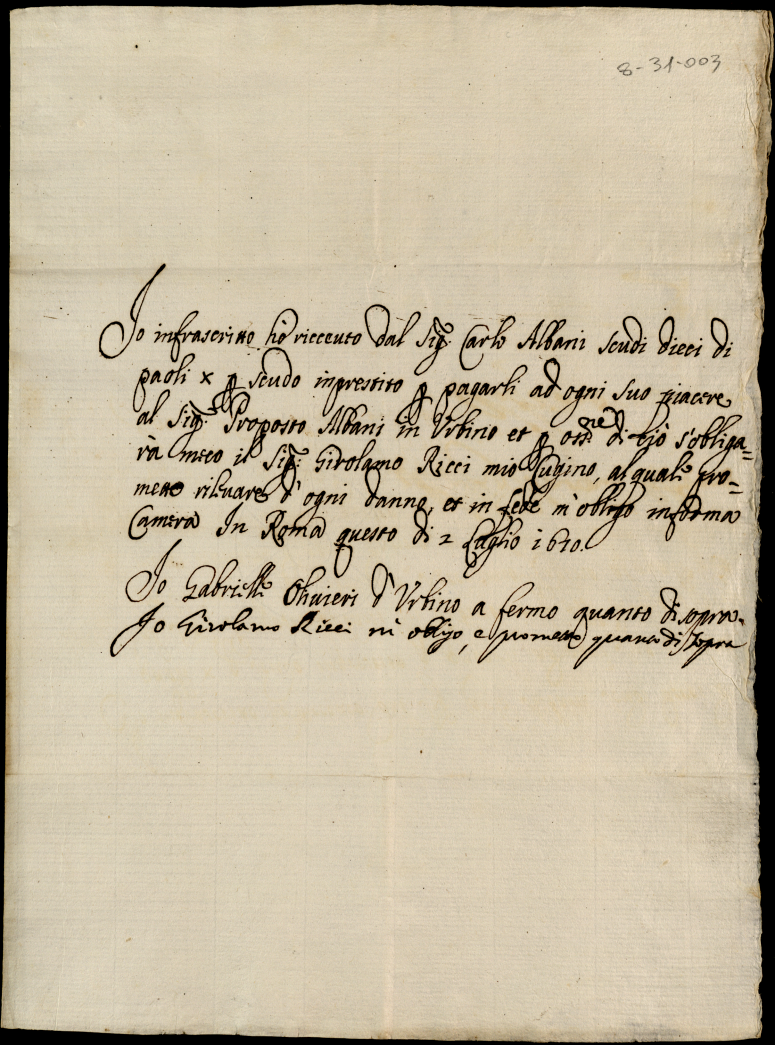 8-31-003
Io infrascritto hò riceeuto dal Sig.r Carlo Albani scudi dieci di
paoli x p scudo inprestito p pagarli ad ogni suo piacere
al Sig.r Proposto Albani in Urbino et p oss.ne di ciò s'obliga=
rà meco il Sig.r Girolamo Ricci mio Cugino, al quale pro=
metto rileuare d'ogni danno, et in fede m'obligo in forma
Camerà In Roma questo di 2 Luglio 1610.
Io Gabrielle Oliuieri d'Urbino a fermo quanto di sopra.
Io Girolamo Ricci m'obligo, e prometto quanto di sopra